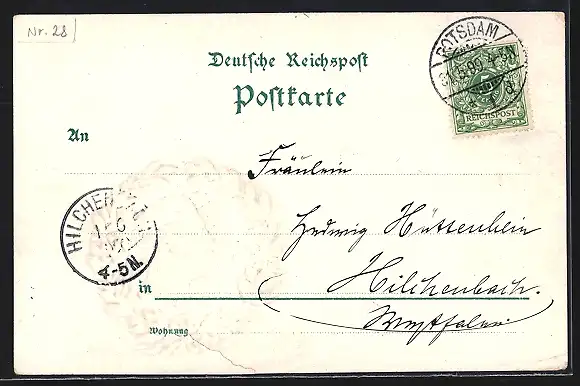 Nr. 28
Deutsche Reichspost
Postkarte
POTSDAM
REICHSPOST
An
Fräulein
Hedwig Hüttenhein
HILCHENB
4-5N.
in
Hilchenbach.
(Westfalen)
Wohnung